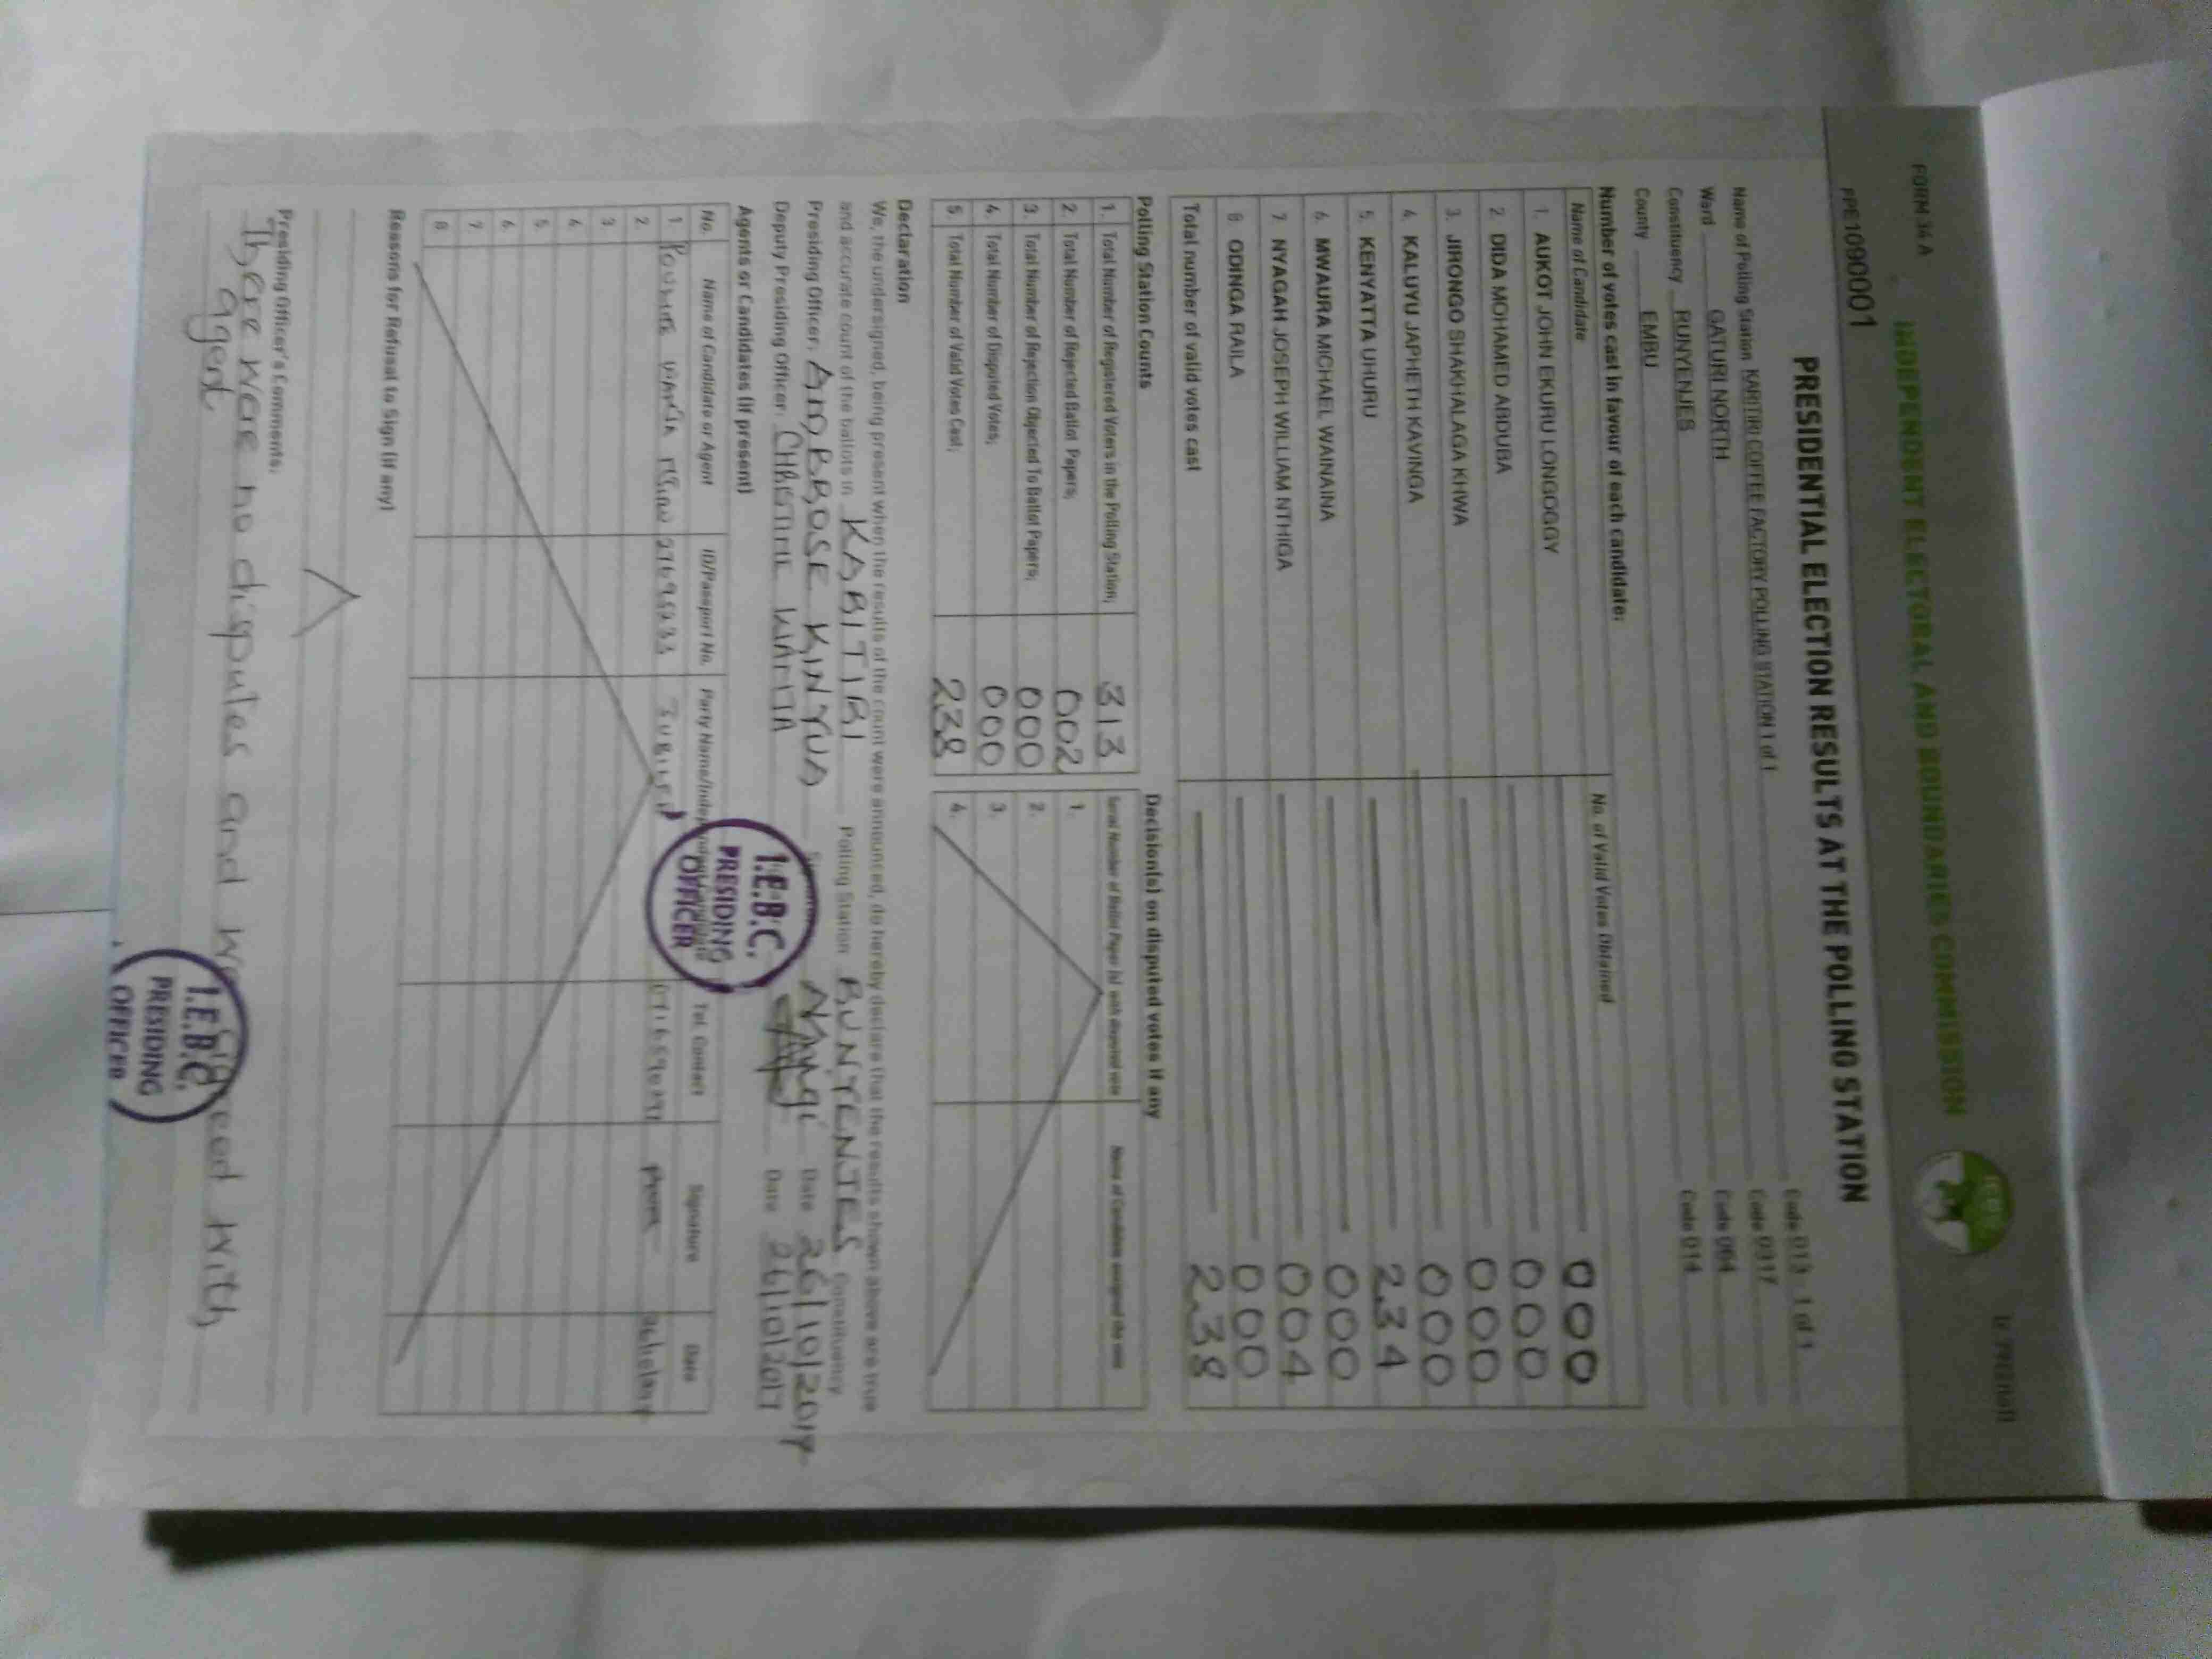 FORM 34 A
INDEPENDENT ELECTORAL AND BOUNDARIES COMMISSION
PRE1090001
PRESIDENTIAL ELECTION RESULTS AT THE POLLING STATION
Name of Polling Station KARITIRI COFFEE FACTORY POLLING STATION 1 of 1 Code 013 - 1 of 1
Ward GATURI NORTH Code 0317
Constituency RUNYENJES Code 064
County EMBU Code 014
Number of votes cast in favour of each candidate:
Name of Candidate No. of Valid Votes Obtained
1. AUKOT JOHN EKURU LONGOGGY 000
2. DIDA MOHAMED ABDUBA 000
3. JIRONGO SHAKHALAGA KHWA 000
4. KALUYU JAPHETH KAVINGA 000
5. KENYATTA UHURU 234
6. MWAURA MICHAEL WAINAINA 000
7. NYAGAH JOSEPH WILLIAM NTHIGA 004
8. ODINGA RAILA 000
Total number of valid votes cast 238
Polling Station Counts
1. Total Number of Registered Voters in the Polling Station; 313
2. Total Number of Rejected Ballot Papers; 002
3. Total Number of Rejection Objected To Ballot Papers; 000
4. Total Number of Disputed Votes; 000
5. Total Number of Valid Votes Cast; 238
Decision(s) on disputed votes if any
1.
2.
3.
4.
Declaration
We, the undersigned, being present when the results of the count were announced, do hereby declare that the results shown above are true
and accurate count of the ballots in KARITIRI Polling Station RUNYENJES Constituency
Presiding Officer: AMBROSE KINYUA Date 26/10/2017
Deputy Presiding Officer: CHRISTINE Date 26/10/2017
Agents or Candidates (if present)
No. Name of Candidate or Agent ID/Passport No. Tel. Contact Signature Date
1
2
3
4
5
6
7
8
I.E.B.C.
PRESIDING
OFFICER
Reasons for Refusal to Sign (if any)
Presiding Officer's Comments:
There were no disputes and with
agent
I.E.B.C.
PRESIDING
OFFICER